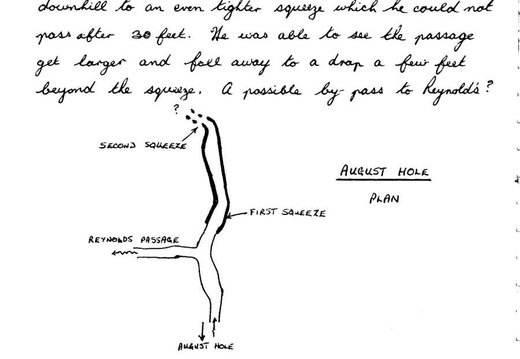 downhill to an even tighter squeeze which he could not
pass after 30 feet. He was able to see the passage
get larger and fall away to a drop a few feet
beyond the squeeze. A possible by-pass to Reynolds?
?
SECOND SQUEEZE
AUGUST HOLE
PLAN
FIRST SQUEEZE
REYNOLDS PASSAGE
AUGUST HOLE